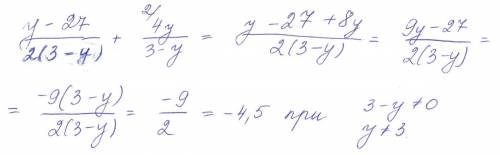 (y − 27)/(2(3 − y)) + 2/ 4y/(3 − y) = (y − 27 + 8y)/(2(3 − y)) = (9y − 27)/(2(3 − y)) =
= (−9(3 − y))/(2(3 − y)) = −9/2 = −4,5 при 3 − y ≠ 0
y ≠ 3